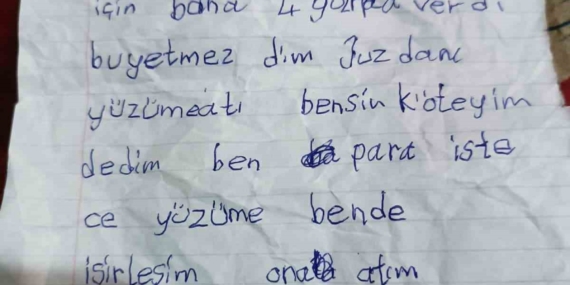 için bana 4 yarıpa verdi
buyetmez dim Juzdanı
yüzümeatı bensin köteyim
dedim ben para iste
ce yüzüme bende
isirlesim ona atım